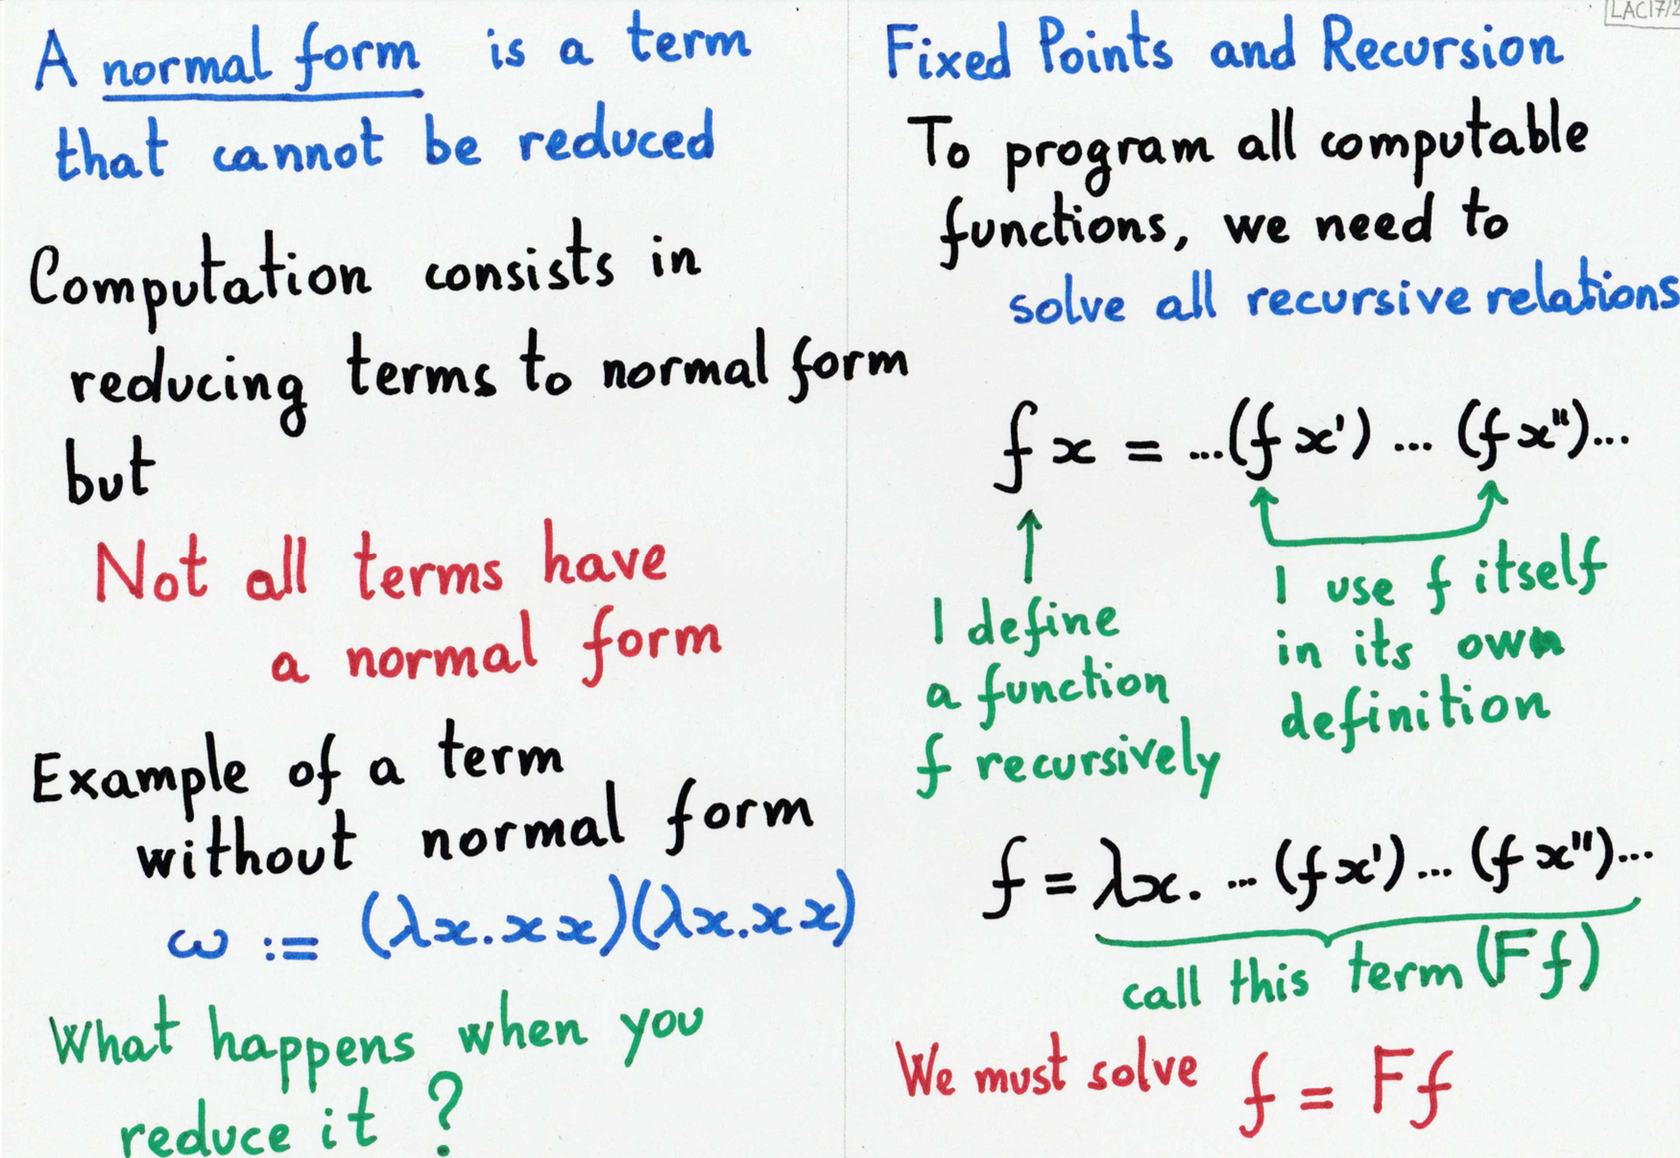 A normal form is a term
that cannot be reduced
Computation consists in
reducing terms to normal form
but
Not all terms have
a normal form
Example of a term
without normal form
ω := (λx.xx)(λx.xx)
What happens when you
reduce it ?
LAC17/2
Fixed Points and Recursion
To program all computable
functions, we need to
solve all recursive relations
f x = ...(f x') ... (f x'')...
I define
a function
f recursively
I use f itself
in its own
definition
f = λx. ... (f x') ... (f x'')...
call this term (F f)
We must solve f = F f